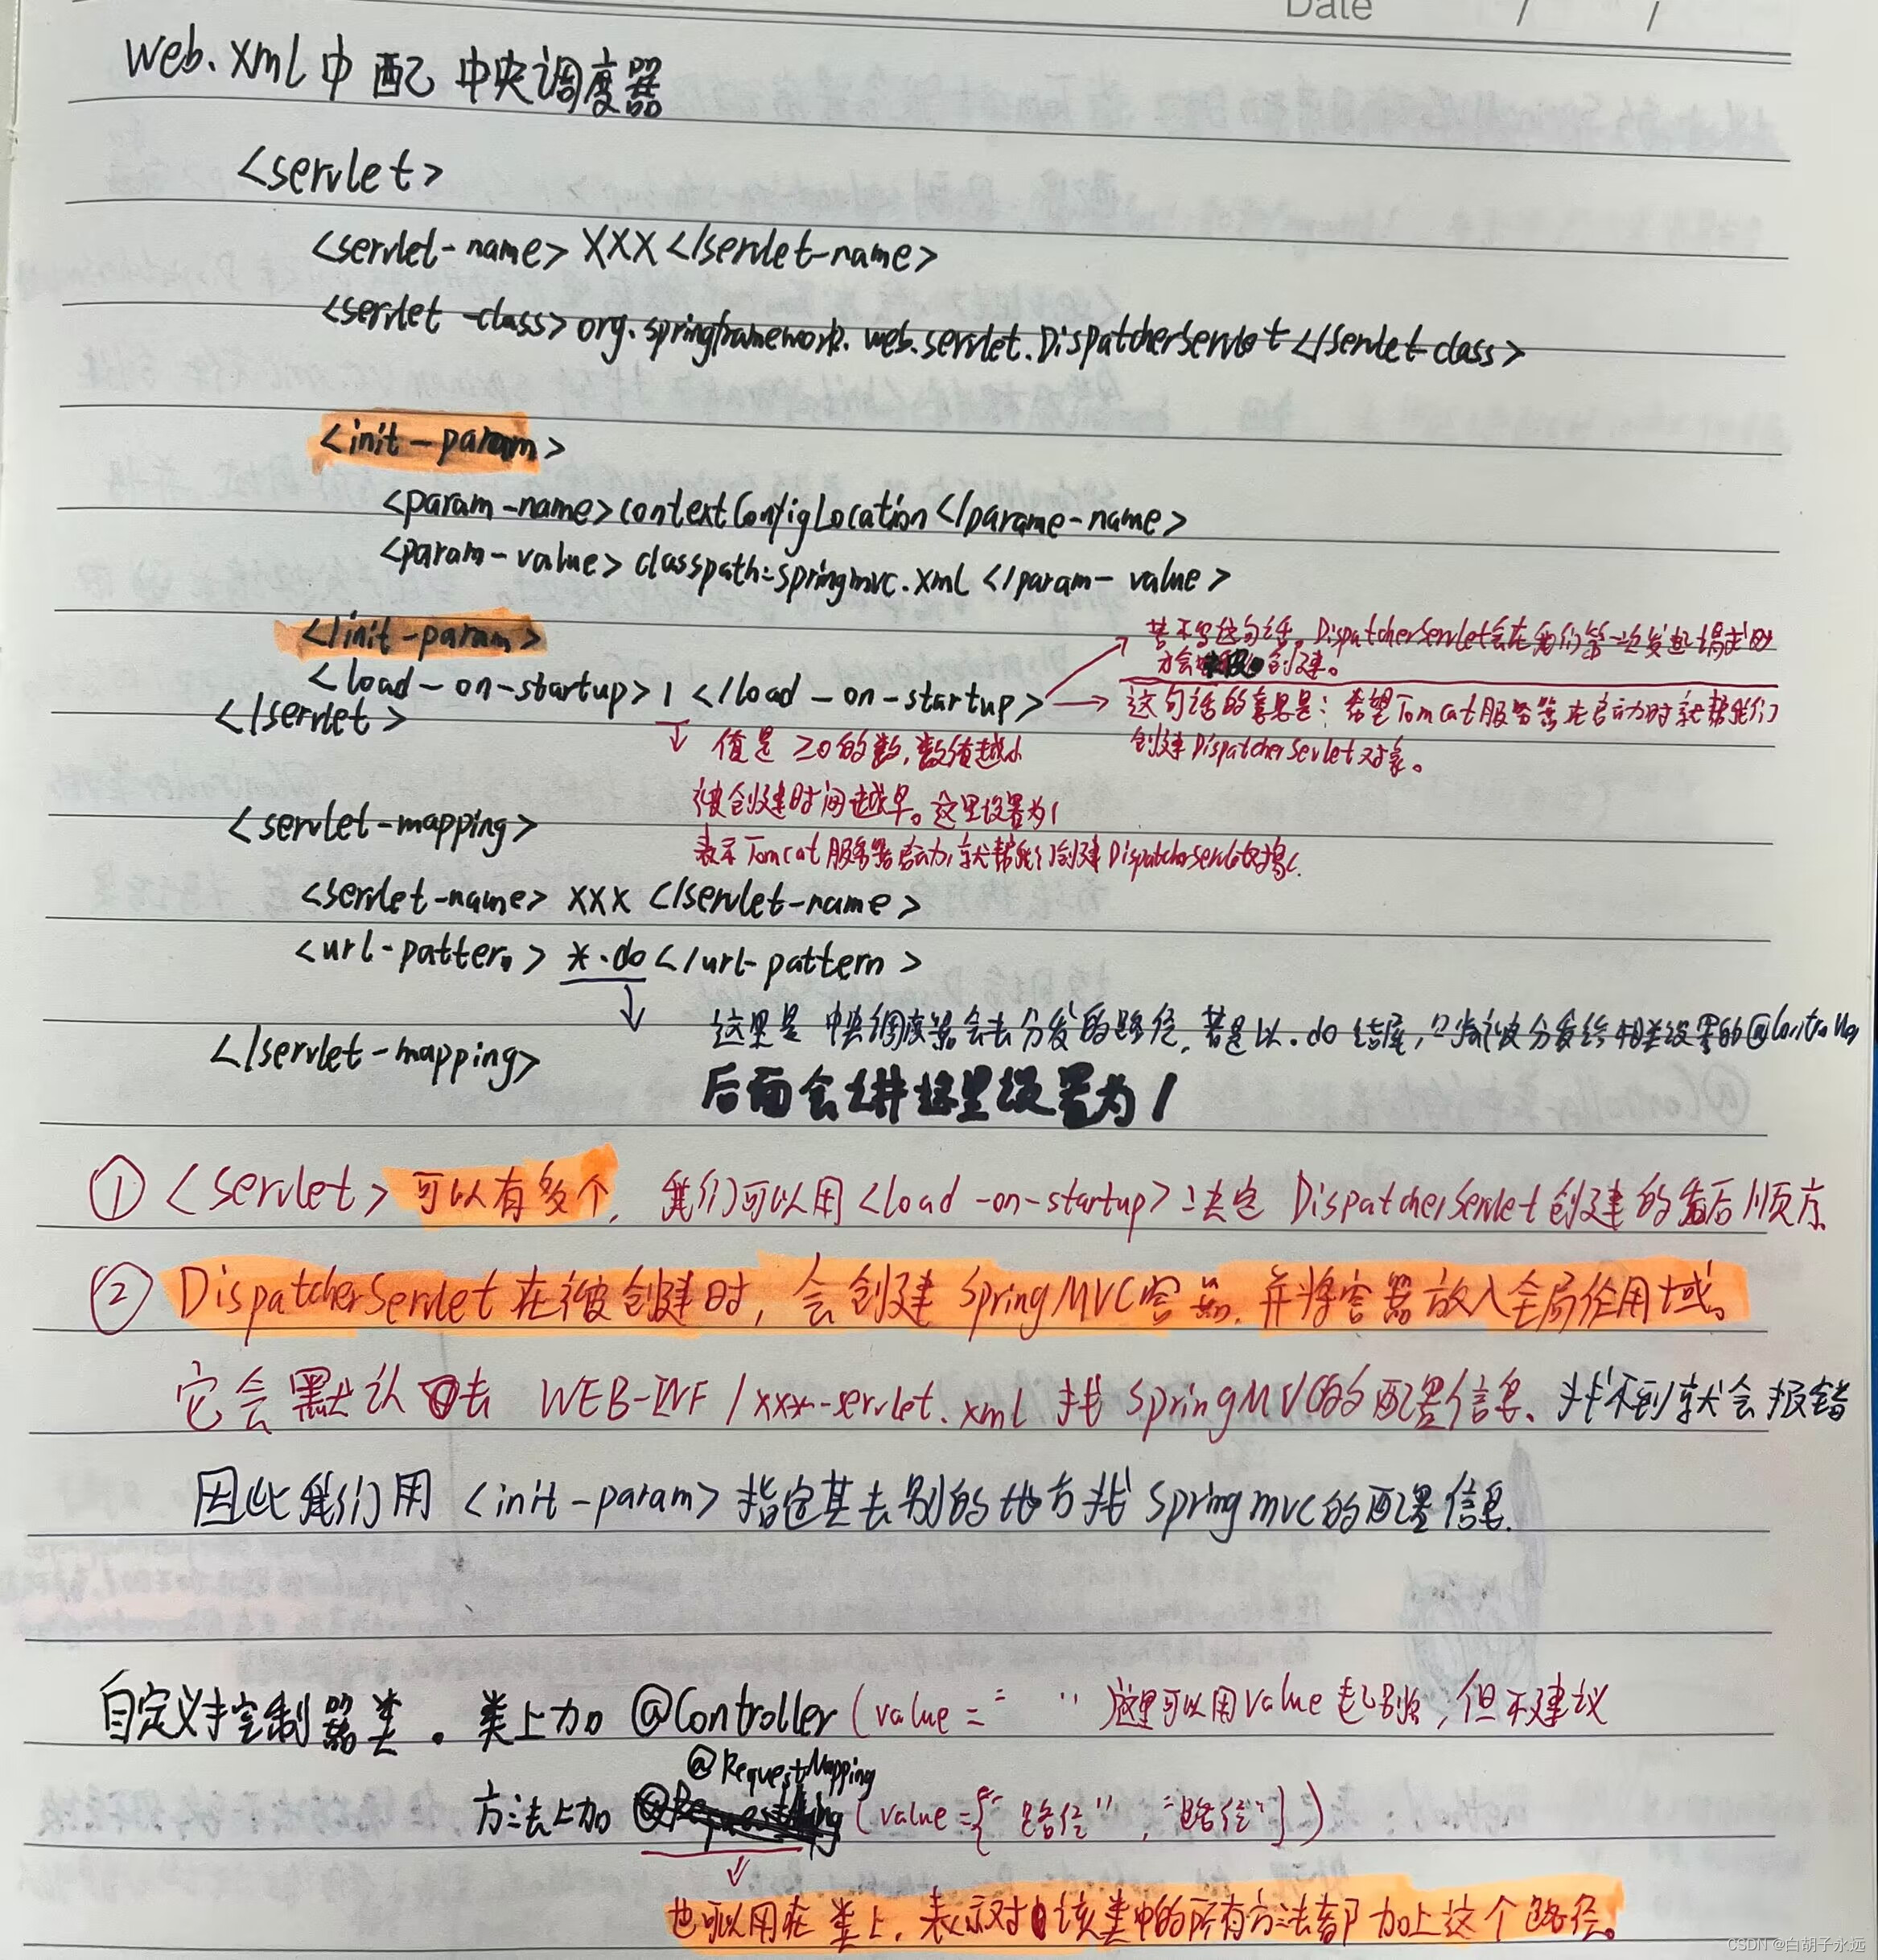 Date / /
web.xml中配 中央调度器
<servlet>
<servlet-name> XXX </servlet-name>
<servlet-class> org.springframework.web.servlet.DispatcherServlet </servlet-class>
<init-param>
<param-name> contextConfigLocation </parame-name>
<param-value> classpath:springmvc.xml </param-value>
</init-param>
若不写这句话。DispatcherServlet会在我们第一次发起请求时
才会 创建。
<load-on-startup> 1 </load-on-startup>
这句话的意思是：希望Tomcat服务器在启动时就帮我们
创建DispatcherServlet对象。
</servlet>
值是 ≥0的数，数值越小
被创建时间越早。这里设置为1
表示Tomcat服务器启动，就帮我们创建DispatcherServlet对象。
<servlet-mapping>
<servlet-name> xxx </servlet-name>
<url-pattern> *.do </url-pattern>
这里是 中央调度器会去分发的路径，若是以.do结尾，只 被分发给相关 的@Controller
</servlet-mapping>
后面会讲这里设置为/
① <servlet> 可以有多个，我们可以用<load-on-startup>决定 DispatcherServlet创建的先后顺序
② DispatcherServlet在被创建时，会创建SpringMVC容器，并将容器放入全局作用域。
它会默认去 WEB-INF/xxx-servlet.xml 找 SpringMVC的配置信息、找不到就会报错
因此我们用 <init-param> 指定其去别的地方找 Springmvc的配置信息.
自定义控制器类。类上加 @Controller (value=" ")这里可以用value起别名，但不建议
@RequestMapping
方法上加 (value={"路径"，"路径"})
也可以用在 类上，表示对该类中的所有方法都加上这个路径。
CSDN @白胡子永远